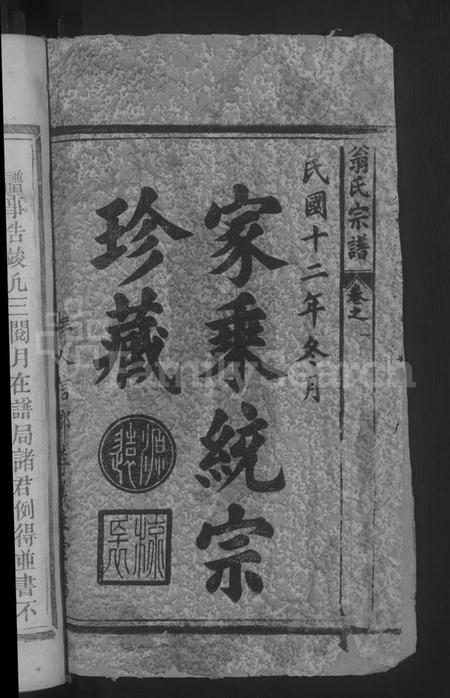 翁氏宗譜
卷之一
民國十二年冬月
家乘統宗
珍藏
源遠
流長
譜事告竣凡三閱月在譜局諸君例得並書不
FamilySearch